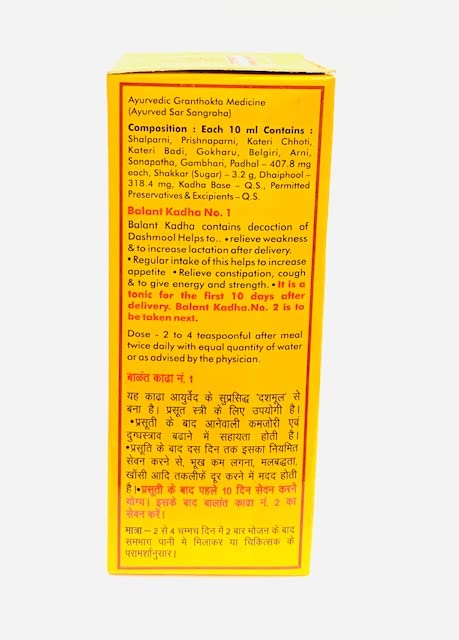 Ayurvedic Granthokta Medicine
(Ayurved Sar Sangraha)
Composition : Each 10 ml Contains :
Shalparni, Prishnaparni, Kateri Chhoti,
Kateri Badi, Gokharu, Belgiri, Arni,
Sonapatha, Gambhari, Padhal – 407.8 mg
each, Shakkar (Sugar) – 3.2 g, Dhaiphool –
318.4 mg, Kadha Base – Q.S., Permitted
Preservatives & Excipients – Q.S.
Balant Kadha No. 1
Balant Kadha contains decoction of
Dashmool Helps to.. •relieve weakness
& to increase lactation after delivery.
• Regular intake of this helps to increase
appetite • Relieve constipation, cough
& to give energy and strength. • It is a
tonic for the first 10 days after
delivery. Balant Kadha.No. 2 is to
be taken next.
Dose - 2 to 4 teaspoonful after meal
twice daily with equal quantity of water
or as advised by the physician.
बाळंत काढा नं. 1
यह काढा आयुर्वेद के सुप्रसिद्ध 'दशमूल' से
बना है। प्रसूत स्त्री के लिए उपयोगी है।
•प्रसूती के बाद आनेवाली कमजोरी एवं
दुग्धस्त्राव बढाने में सहायता होती है।
•प्रसूति के बाद दस दिन तक इसका नियमित
सेवन करने से, भूख कम लगना, मलबद्धता,
खाँसी आदि तकलीफें दूर करने में मदद होती
है।•प्रसूती के बाद पहले 10 दिन सेवन करने
योग्य। इसके बाद बालांत काढा नं. 2 का
सेवन करें।
मात्रा – 2 से 4 चम्मच दिन में 2 बार भोजन के बाद
समभाग पानी मे मिलाकर या चिकित्सक के
परामर्शानुसार।